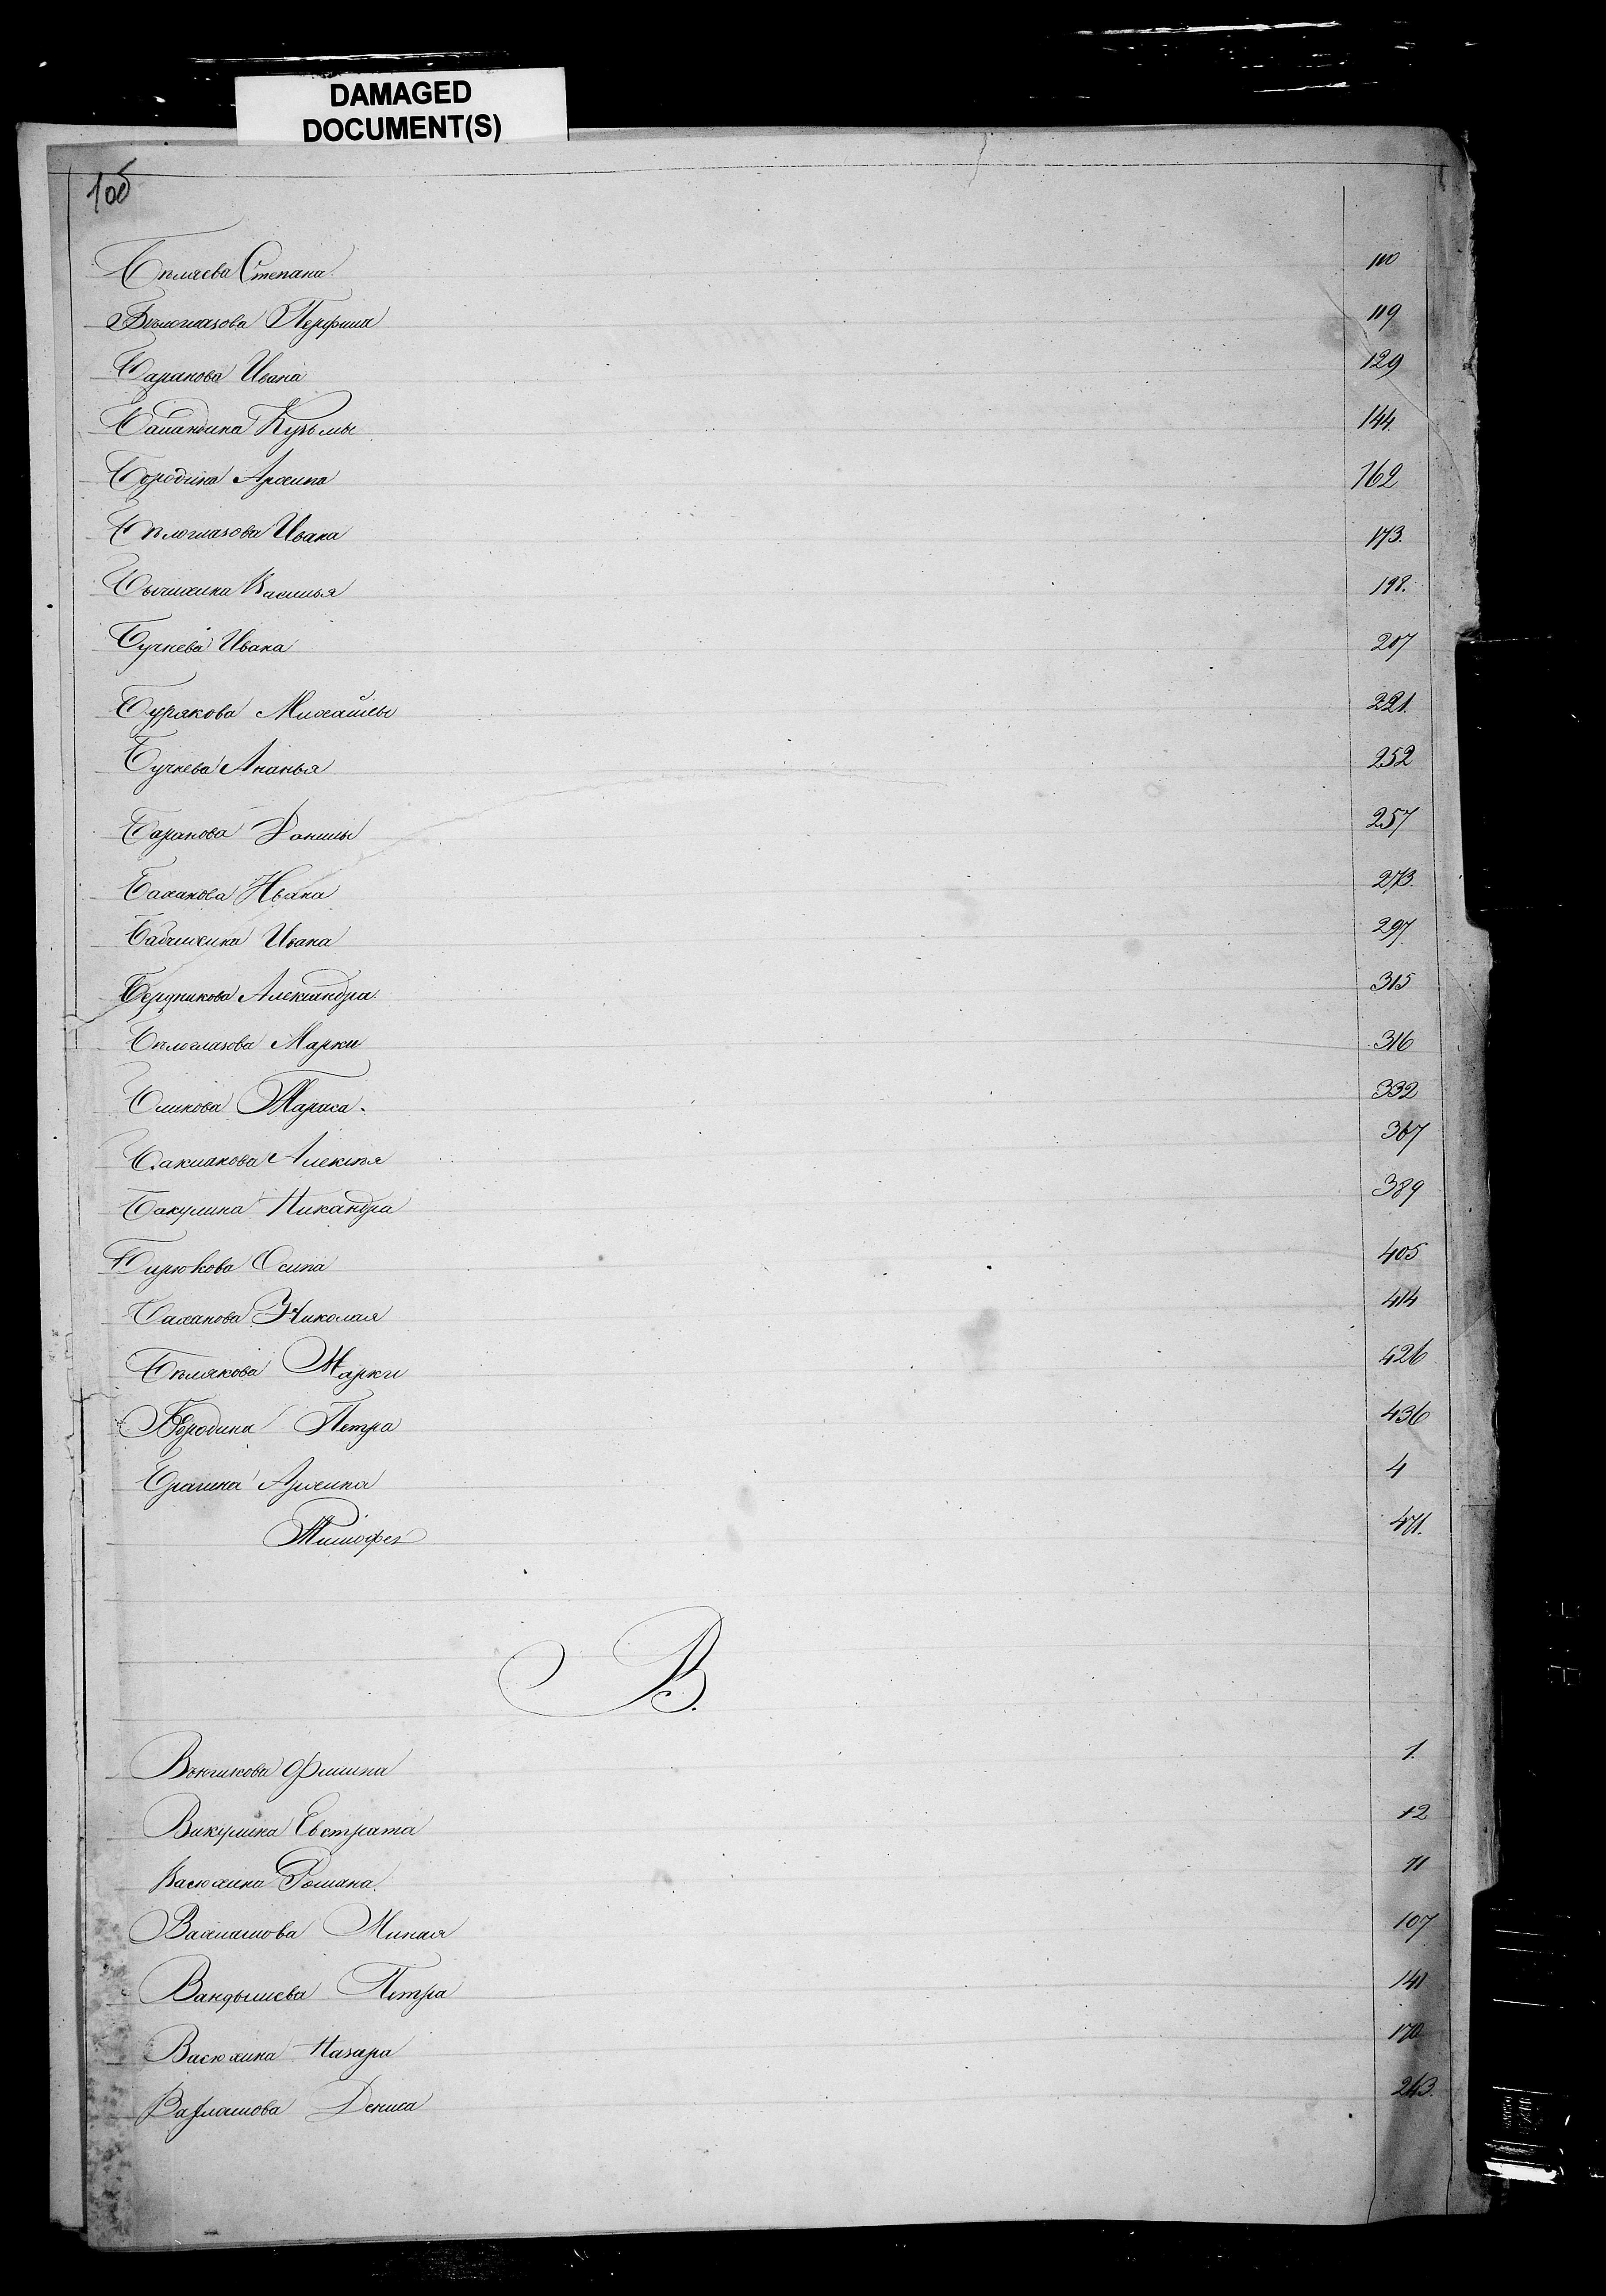 DAMAGED
DOCUMENT(S)
1об
Бѣляева Степана 110
Бѣлоглазова Перфила 119
Баранова Ивана 129
Баландина Кузьмы 144.
Бородина Архипа 162
Бѣлоглазова Ивана 173.
Бычихина Василья 198.
Бучнева Ивана 207
Бурякова Михайлы 221.
Бучнева Ананья 252
Баранова Данилы 257
Баханова Ивана 273.
Бабчихина Ивана 297
Бердникова Александра 315
Бѣлоглазова Марки 316
Тараса. 332
Баклакова Алексѣя 367
Бакулина Никандра 389
Бирюкова Осипа 405
Баханова Николая 414
Бѣлякова Марки 426
Бородина Петра 436
Брагина Архипа 4
Тимофея 471.
В.
Филипа 1.
Викулина Евстрата 12
Васюхина Романа. 71
Варламова Миная 107
Вандышева Петра 141
Васюхина Назара 170
Варламова Дениса 243.